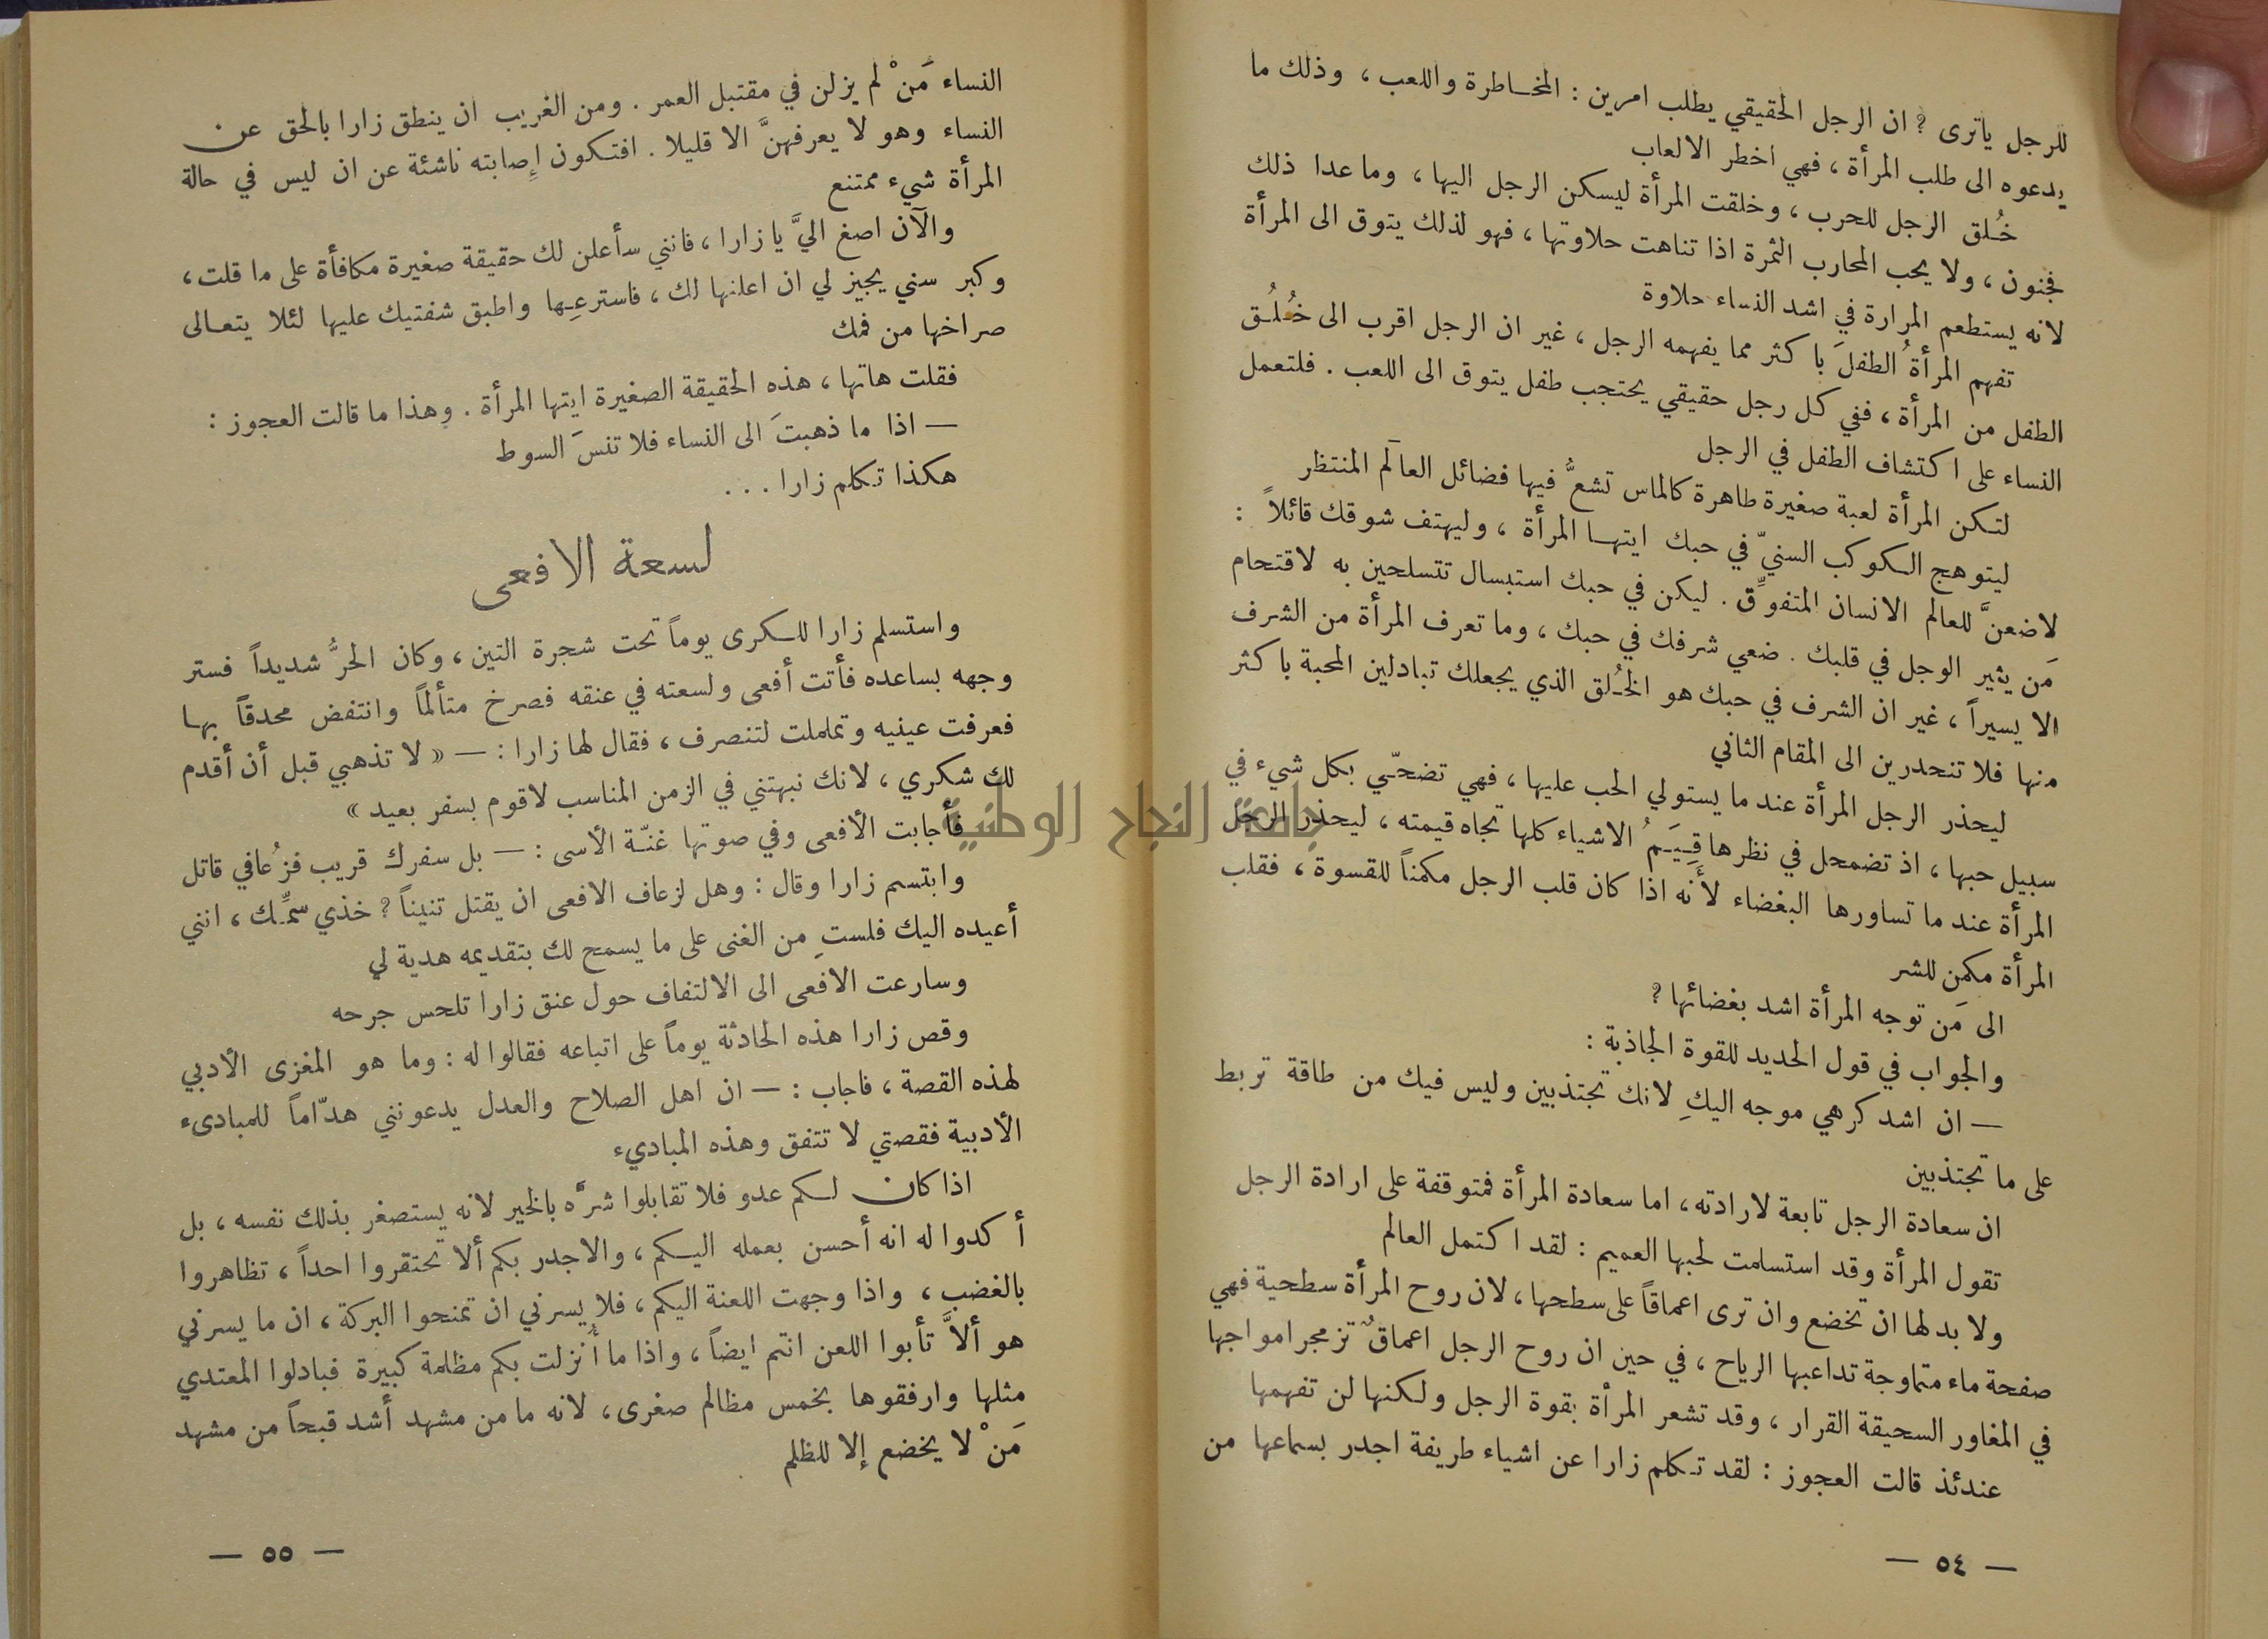 للرجل ياترى ؟ ان الرجل الحقيقي يطلب امرين : المخاطرة واللعب ، وذلك ما
يدعوه الى طلب المرأة ، فهي اخطر الالعاب
خُلق الرجل للحرب ، وخلقت المرأة ليسكن الرجل اليها ، وما عدا ذلك
فجنون ، ولا يحب المحارب الثمرة اذا تناهت حلاوتها ، فهو لذلك يتوق الى المرأة
لانه يستطعم المرارة في اشد النساء حلاوة
تفهم المرأةُ الطفلَ باكثر مما يفهمه الرجل ، غير ان الرجل اقرب الى خُلُق
الطفل من المرأة ، ففي كل رجل حقيقي يحتجب طفل يتوق الى اللعب . فلتعمل
النساء على اكتشاف الطفل في الرجل
لتكن المرأة لعبة صغيرة طاهرة كالماس تشعُّ فيها فضائل العالَم المنتظر
ليتوهج الكوكب السنيّ في حبك ايتها المرأة ، وليهتف شوقك قائلاً :
لاضعنَّ للعالم الانسان المتفوِّق . ليكن في حبك استبسال تتسلحين به لاقتحام
مَن يثير الوجل في قلبك . ضعي شرفك في حبك ، وما تعرف المرأة من الشرف
الا يسيراً ، غير ان الشرف في حبك هو الخُلق الذي يجعلك تبادلين المحبة باكثر
منها فلا تنحدرين الى المقام الثاني
ليحذر الرجل المرأة عند ما يستولي الحب عليها ، فهي تضحّي بكل شيء في
سبيل حبها ، اذ تضمحل في نظرها قِيَمُ الاشياء كلها تجاه قيمته ، ليحذر الرجل
المرأة عند ما تساورها البغضاء لأنه اذا كان قلب الرجل مكمناً للقسوة ، فقلب
المرأة مكمن للشر
الى مَن توجه المرأة اشد بغضائها ؟
والجواب في قول الحديد للقوة الجاذبة :
— ان اشد كرهي موجه اليكِ لانك تجتذبين وليس فيك من طاقة تربط
على ما تجتذبين
ان سعادة الرجل تابعة لارادته ، اما سعادة المرأة فمتوقفة على ارادة الرجل
تقول المرأة وقد استسلمت لحبها العميم : لقد اكتمل العالم
ولا بد لها ان تخضع وان ترى اعماقاً على سطحها ، لان روح المرأة سطحية فهي
صفحة ماء متماوجة تداعبها الرياح ، في حين ان روح الرجل اعماقٌ تزمجر امواجها
في المغاور السحيقة القرار ، وقد تشعر المرأة بقوة الرجل ولكنها لن تفهمها
عندئذ قالت العجوز : لقد تكلم زارا عن اشياء طريفة اجدر بسماعها من
— ٥٤ —
النساء مَنْ لم يزلن في مقتبل العمر . ومن الغريب ان ينطق زارا بالحق عن
النساء وهو لا يعرفهنَّ الا قليلا . افتكون إصابته ناشئة عن ان ليس في حالة
المرأة شيء ممتنع
والآن اصغ اليَّ يا زارا ، فانني سأعلن لك حقيقة صغيرة مكافأة على ما قلت ،
وكبر سني يجيز لي ان اعلنها لك ، فاسترعِها واطبق شفتيك عليها لئلا يتعالى
صراخها من فمك
فقلت هاتها ، هذه الحقيقة الصغيرة ايتها المرأة . وهذا ما قالت العجوز :
— اذا ما ذهبتَ الى النساء فلا تنسَ السوط
هكذا تكلم زارا . . .
لسعة الافعى
واستسلم زارا للكرى يوماً تحت شجرة التين ، وكان الحرُّ شديداً فستر
وجهه بساعده فأتت أفعى ولسعته في عنقه فصرخ متألماً وانتفض محدقاً بها
فعرفت عينيه وتململت لتنصرف ، فقال لها زارا : — « لا تذهبي قبل أن أقدم
لك شكري ، لانك نبهتني في الزمن المناسب لاقوم بسفر بعيد »
فأجابت الأفعى وفي صوتها غنّة الأسى : — بل سفرك قريب فزُعافي قاتل
وابتسم زارا وقال : وهل لزعاف الافعى ان يقتل تنيناً ؟ خذي سمِّك ، انني
أعيده اليك فلستِ من الغنى على ما يسمح لك بتقديمه هدية لي
وسارعت الافعى الى الالتفاف حول عنق زارا تلحس جرحه
وقص زارا هذه الحادثة يوماً على اتباعه فقالوا له : وما هو المغزى الأدبي
لهذه القصة ، فاجاب : — ان اهل الصلاح والعدل يدعونني هدّاماً للمبادىء
الأدبية فقصتي لا تتفق وهذه المباديء
اذا كان لكم عدو فلا تقابلوا شرَّه بالخير لانه يستصغر بذلك نفسه ، بل
أكدوا له انه أحسن بعمله اليكم ، والاجدر بكم ألا تحتقروا احداً ، تظاهروا
بالغضب ، واذا وجهت اللعنة اليكم ، فلا يسرني ان تمنحوا البركة ، ان ما يسرني
هو ألاَّ تأبوا اللعن انتم ايضاً ، واذا ما أُنزلت بكم مظلمة كبيرة فبادلوا المعتدي
مثلها وارفقوها بخمس مظالم صغرى ، لانه ما من مشهد أشد قبحاً من مشهد
مَنْ لا يخضع إلا للظلم
— ٥٥ —
جامعة النجاح الوطنية